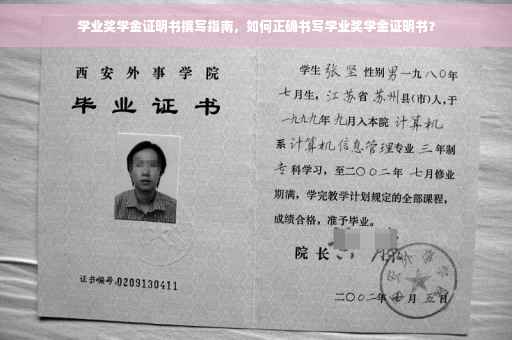 学业奖学金证明书撰写指南，如何正确书写学业奖学金证明书？
西安外事学院
毕业证书
证书编号:0209130411
学生 张坚 性别男 一九八〇年
七月生，江苏省 苏州县(市)人，于
一九九九年 九月入本院 计算机
系 计算机信息管理专业 三 年制
专 科学习，至二〇〇二年 七月修业
期满，学完教学计划规定的全部课程，
成绩合格，准予毕业。
院长
二〇〇二年 月 五日